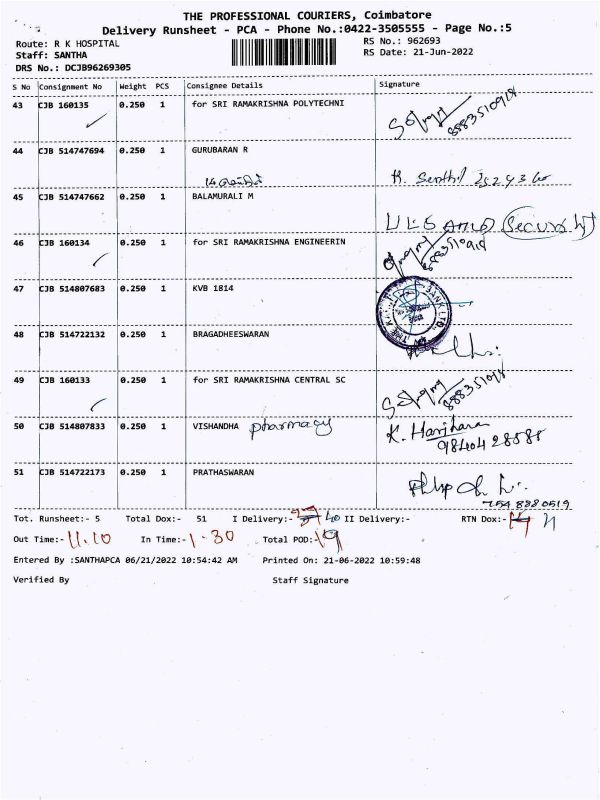 THE PROFESSIONAL COURIERS, Coimbatore
Delivery Runsheet - PCA - Phone No.:0422-3505555 - Page No.:5
Route: R K HOSPITAL
RS No.: 962693
Staff: SANTHA
RS Date: 21-Jun-2022
DRS No.: DCJB96269305
S No Consignment No Weight PCS Consignee Details Signature
43 CJB 160135 0.250 1 for SRI RAMAKRISHNA POLYTECHNI
8883510918
44 CJB 514747694 0.250 1 GURUBARAN R
K. Senthil
45 CJB 514747662 0.250 1 BALAMURALI M
Security
46 CJB 160134 0.250 1 for SRI RAMAKRISHNA ENGINEERIN
8883510918
47 CJB 514807683 0.250 1 KVB 1814
BANK LTD.
48 CJB 514722132 0.250 1 BRAGADHEESWARAN
49 CJB 160133 0.250 1 for SRI RAMAKRISHNA CENTRAL SC
8883510918
50 CJB 514807833 0.250 1 VISHANDHA pharmacy K. Harihara
98404 28585
51 CJB 514722173 0.250 1 PRATHASWARAN
754 8880519
Tot. Runsheet:- 5 Total Dox:- 51 I Delivery:- 37 40 II Delivery:- RTN Dox:- 14 11
Out Time:- 11.10 In Time:- 1.30 Total POD:-
Entered By :SANTHAPCA 06/21/2022 10:54:42 AM Printed On: 21-06-2022 10:59:48
Verified By Staff Signature